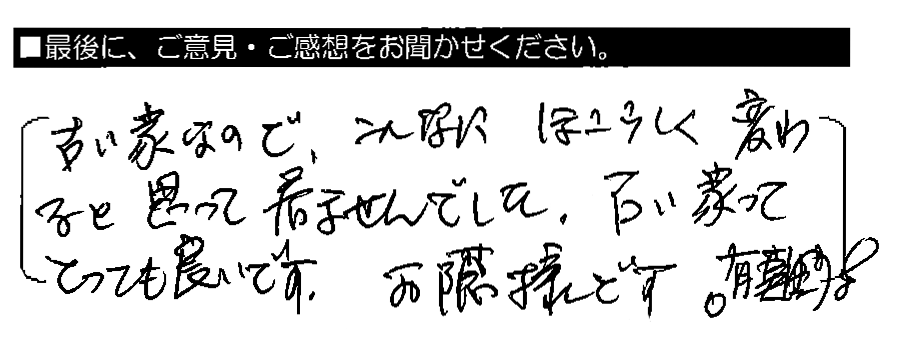 ■最後に、ご意見・ご感想をお聞かせください。
古い家なので、こんなに ほこらしく 変わ
ると 思って 居ませんでした。古い家って
とっても良いです。 お隣様です。有難う